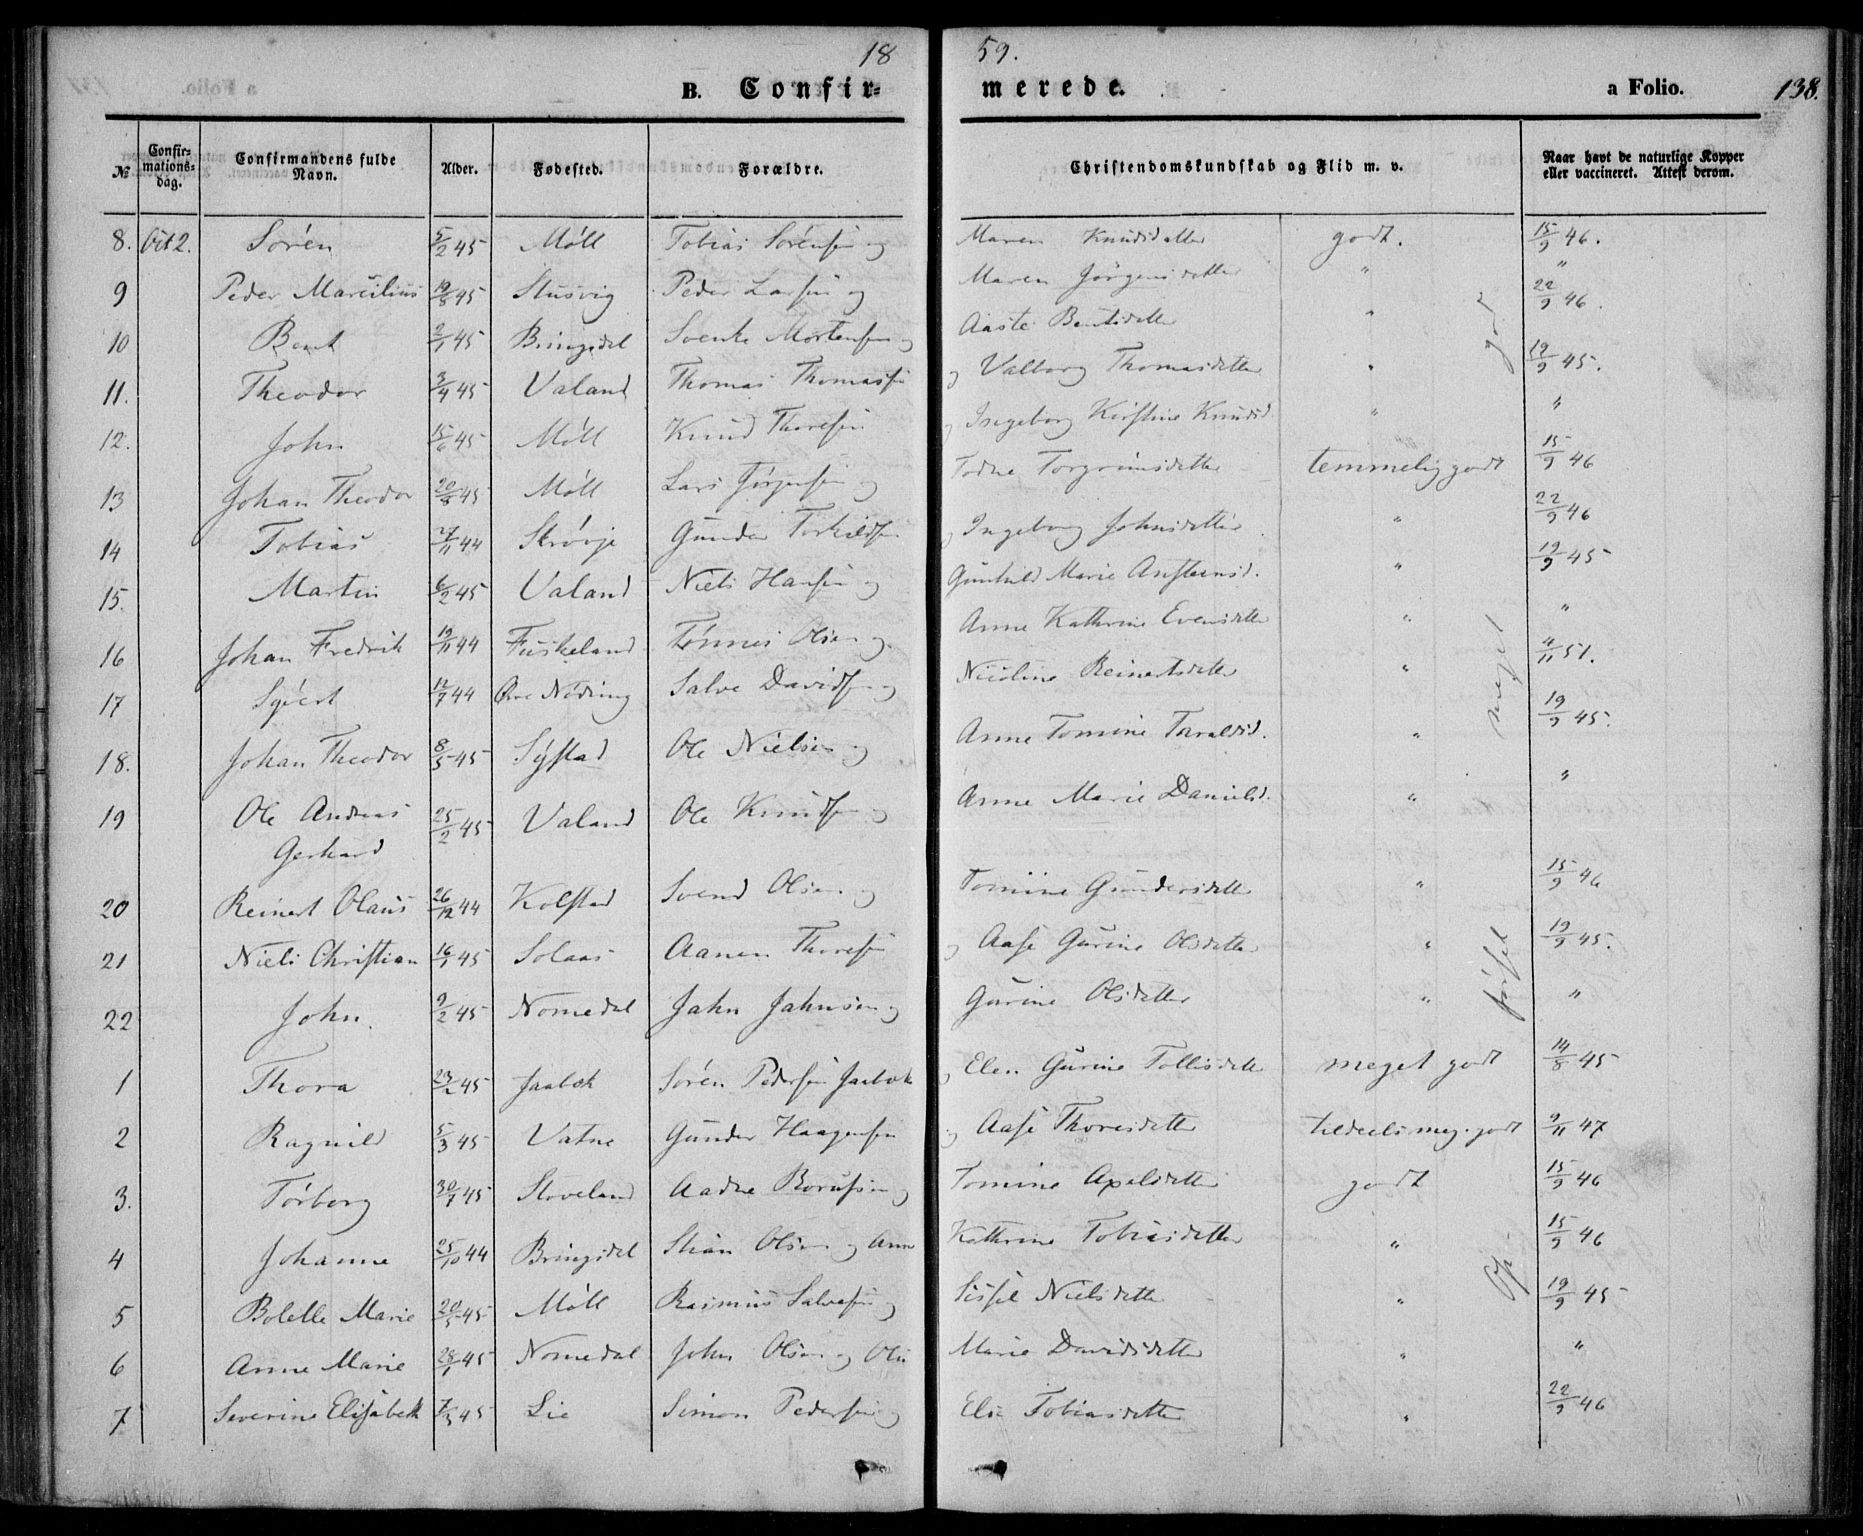 18 59.
B. Confir= merede. a Folio. 138.
№ Confir=mations=dag. Confirmandens fulde Navn. Alder. Fødested. Forældre. Christendomskundskab og Flid m. v. Naar havt de naturlige Kopper eller vaccineret. Attest derom.
8. Oct 2. Sören 5/2 45 Möll Tobias Sörensen og Maren Knudsdatter godt. 15/9 46.
9 Peder Marcilius 19/8 45 Stusvig Peder Larsen og Maren Jörgensdatter " "
10 Bent 2/1 45 Bringsdal Svenke Mortensen og Aaste Bentsdatter " 22/9 46.
11. Theodor 3/4 45 Valand Thomas Thomassen og Valborg Thomasdatter " 19/9 45.
12. John 15/6 45 Möll Knud Thoresen og Ingeborg Kirstine Knudsd. " "
13 Johan Theodor 20/8 45 Möll Lars Jörgensen og Todne Torgrimsdatter temmelig godt 15/9 46
14 Tobias 27/11 44 Skrövje Gunder Torkildsen og Ingeborg Johnsdatter " 22/9 46
15. Martin 6/2 45 Valand Niels Hansen og Gunhild Marie Anstensd. " 19/9 45
16 Johan Fredrik 19/11 44 Fuskeland Tönnes Olsen og Anne Kathrine Evensdatter " "
17 Sjvert 12/7 44 Øvre Nöding Salve Davidsen og Nicoline Reinertsdatter " 4/11 51.
18. Johan Theodor 8/5 45 Sÿstad Ole Nielsen og Anne Tomine Taraldsd. " 19/9 45.
19 Ole Andreas 25/2 45 Valand Ole Knudsen og Anne Marie Danielsd. " "
Gerhard
20 Reinert Olaus 26/12 44 Kolstad Svend Olsen og Tomine Gundersdatter " 15/9 46
21 Niels Christian 16/1 45 Solaas Aanen Thoresen og Aase Gurine Olsdatter " 19/9 45.
22 John. 9/2 45 Nomedal Jahn Jahnsen og Gurine Olsdatter " "
1 Thora 23/2 45 Jaabek Sören Pedersen Jaabek og Elen Gurine Tollisdatter meget godt 14/8 45
2 Ragnild 5/3 45 Vatne Gunder Haagensen og Aase Thoresdatter tildeels meg. godt 9/11 47
3. Torborg 30/7 45 Stoveland Aadne Borufsen og Tomine Axelsdatter godt 15/9 46
4 Johanne 25/10 44 Bringsdal Stian Olsen og Anne Kathrine Tobiasdatter " 15/9 46
5 Bolette Marie 20/5 45 Möll Rasmus Salvesen og Sissel Nielsdatter " 19/9 45
6 Anne Marie 28/1 45 Nomedal John Olsen og Oline Marie Davidsdatter " "
7 Severine Elisabeth 7/3 45 Lie Simon Pedersen og Else Tobiasdatter " 22/9 46
Op= försel meget god